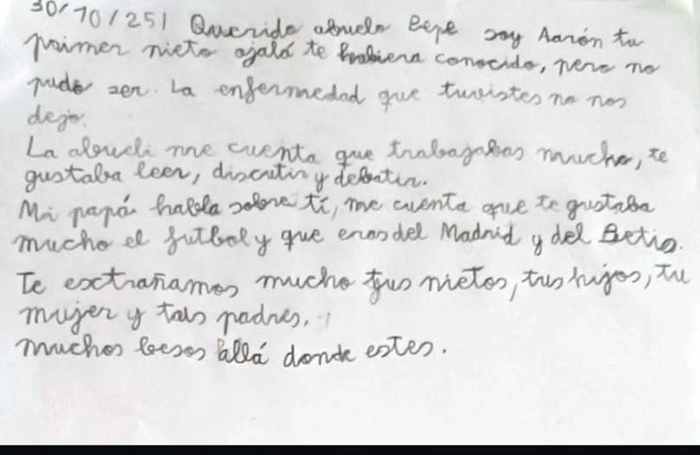 30/10/25| Querido abuelo Bepe soy Aarón tu
primer nieto ojalá te hubiera conocido, pero no
pudo ser. La enfermedad que tuvistes no nos
dejo.
La abueli me cuenta que trabajabas mucho, te
gustaba leer, discutir y debatir.
Mi papá habla sobre tí, me cuenta que te gustaba
mucho el futbol y que eras del Madrid y del Betis.
Te extrañamos mucho tus nietos, tus hijos, tu
mujer y tus padres.
muchos besos allá donde estes.